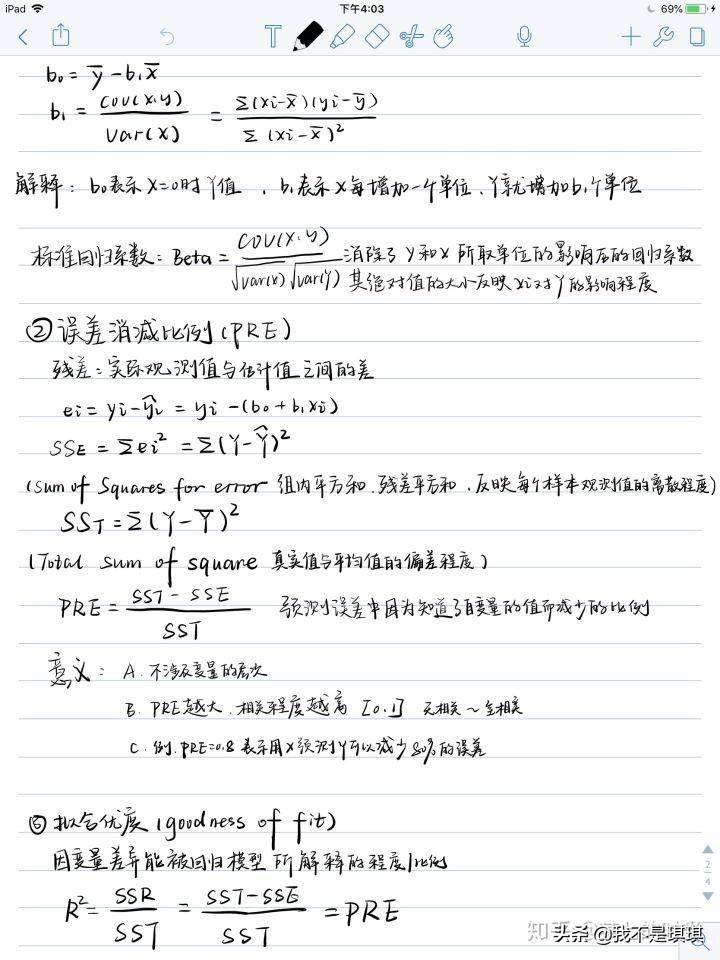 iPad 下午4:03 69%
T
b₀ = y̅ - b₁x̅
b₁ = cov(x,y) / var(x) = Σ(xi-x̅)(yi-y̅) / Σ(xi-x̅)²
解释: b₀表示X=0时Y值, b₁表示X每增加一个单位, Y就增加b₁个单位
标准回归系数: Beta = cov(x,y) / √var(x) √var(y) 消除了Y和X所取单位的影响后的回归系数
其绝对值的大小反映xi对Y的影响程度
② 误差消减比例(PRE)
残差: 实际观测值与估计值之间的差
ei = yi - ŷi = yi - (b₀ + b₁xi)
SSE = Σei² = Σ(Y-Ŷ)²
(Sum of Squares for error 组内平方和、残差平方和, 反映每个样本观测值的离散程度)
SST = Σ(Y-Y̅)²
(Total sum of square 真实值与平均值的偏差程度)
PRE = SST-SSE / SST 预测误差中因为知道了自变量的值而减少的比例
意义: A. 不涉及变量的层次
B. PRE越大, 相关程度越高 [0,1] 无相关~全相关
C. 例. PRE=0.8 表示用X预测Y可以减少80%的误差
③ 拟合优度 (goodness of fit)
因变量差异能被回归模型所解释的程度/比例
R² = SSR / SST = SST-SSE / SST = PRE
2/4
知乎
头条 @我不是琪琪